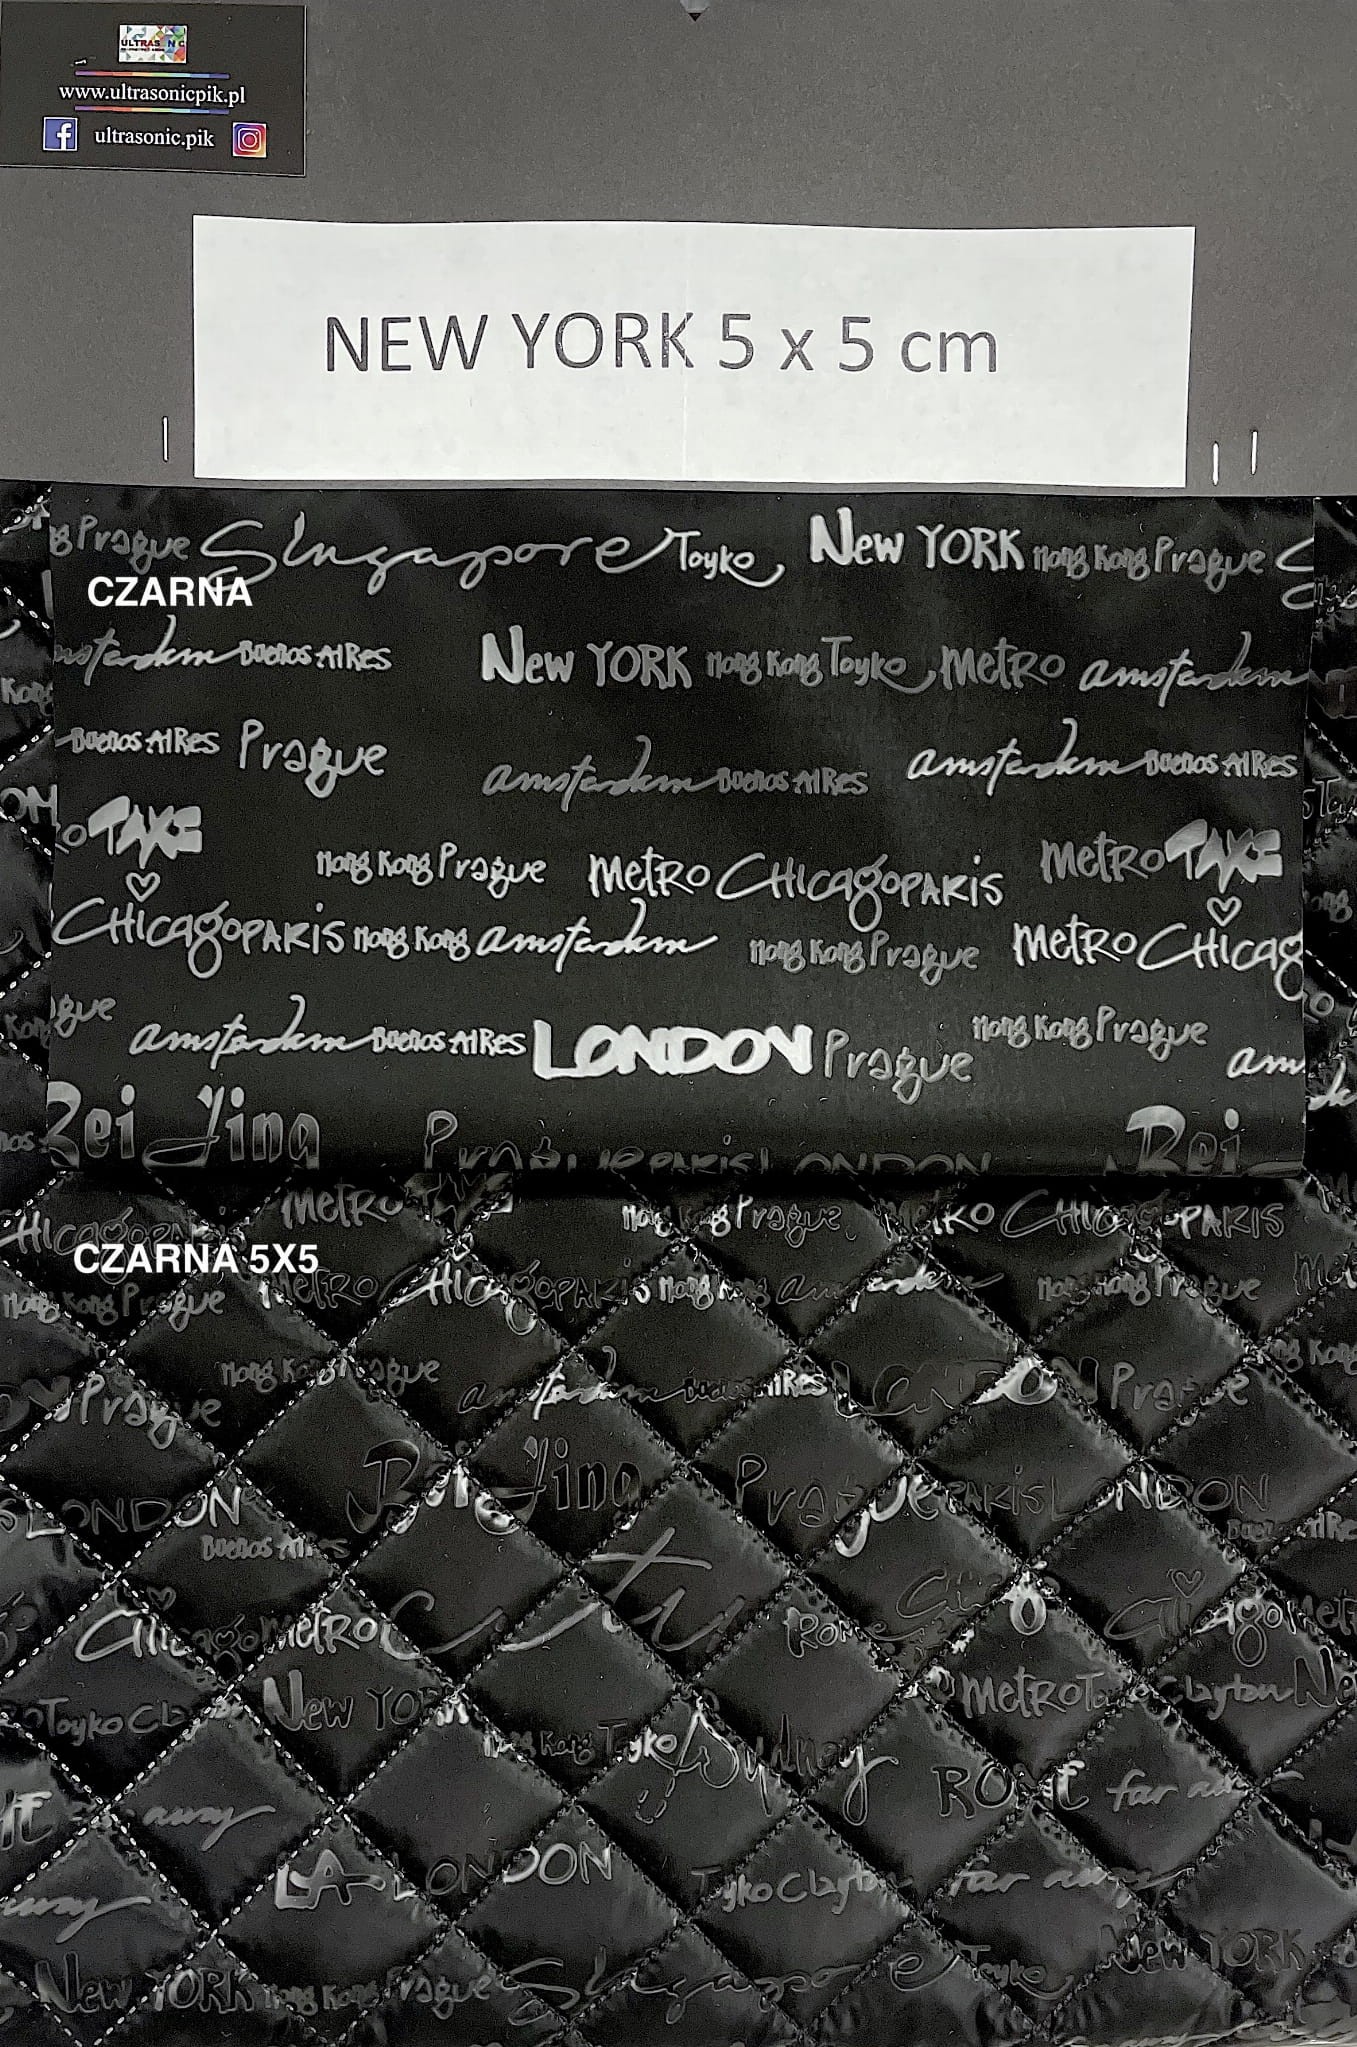 ULTRAS NC
www.ultrasonicpik.pl
ultrasonic.pik
NEW YORK 5 x 5 cm
g Prague Singapore Toyko New YORK Hong Kong Prague
CZARNA
amsterdam Buenos AIRes New YORK Hong Kong Toyko Metro amsterdam
Buenos AIRes Prague amsterdam Buenos AIRes amsterdam Buenos AIRes
TAKE Hong Kong Prague Metro CHicagoPARIS Metro TAKE
CHicagoPARIS Hong Kong amsterdam Hong Kong Prague Metro CHicag
gue amsterdam Buenos AIRes LONDON Prague Hong Kong Prague am
Bei Jing Prague PARIS LONDON Bei
Metro Hong Kong Prague CHicagoPARIS
CZARNA 5X5
Hong Kong Prague Metro CHicagoPARIS Hong Kong amsterdam Hong Kong Prague
Prague Hong Kong Prague amsterdam Buenos AIRes LONDON Prague
LONDON Bei Jing Prague PARIS LONDON
Buenos AIRes
Chicago Metro ROME
Toyko New YORK Hong Kong Toyko Sydney Metro Clayton
away ROME far away
away LA LONDON Toyko Clayton far away
New YORK Hong Kong Prague Singapore Toyko New YORK